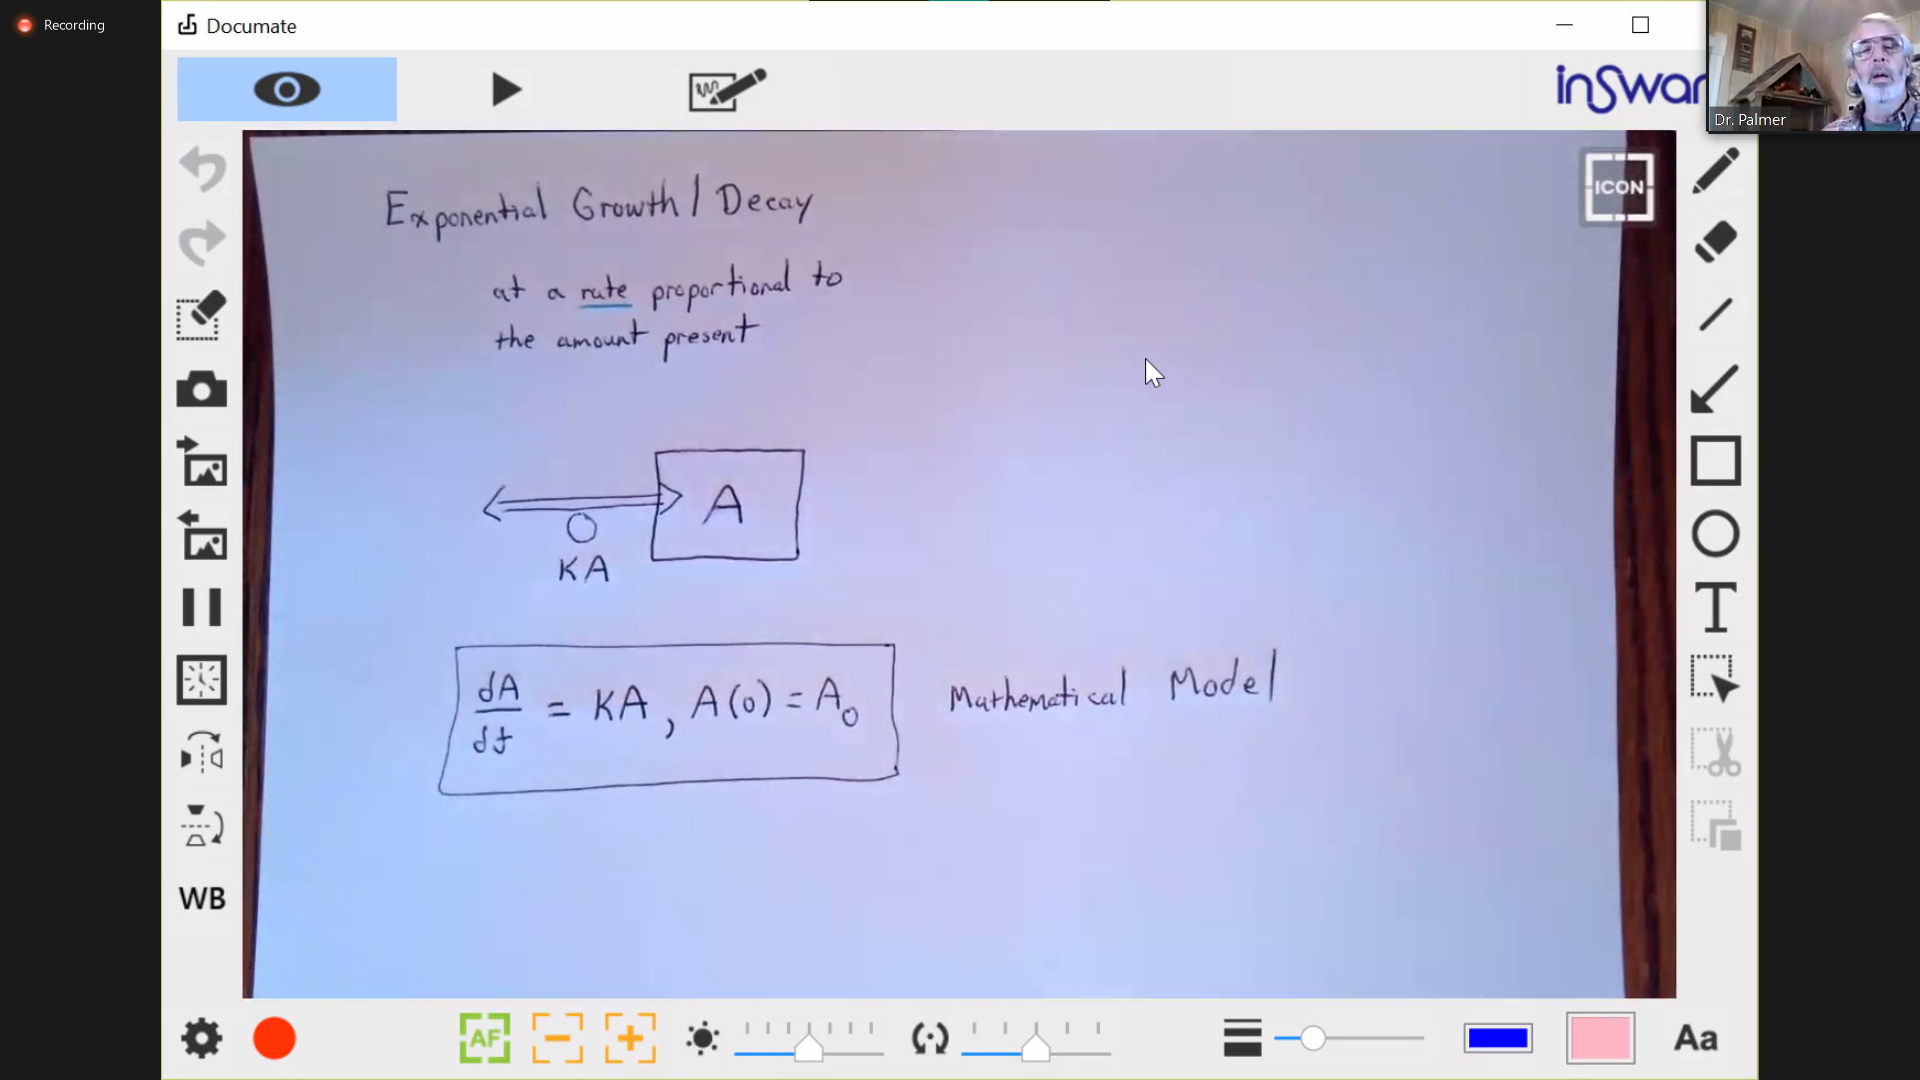 Recording
Documate
inSwan
Dr. Palmer
ICON
Exponential Growth / Decay
at a rate proportional to
the amount present
A
KA
dA/dt = KA, A(0) = A₀
Mathematical Model
T
WB
AF
Aa